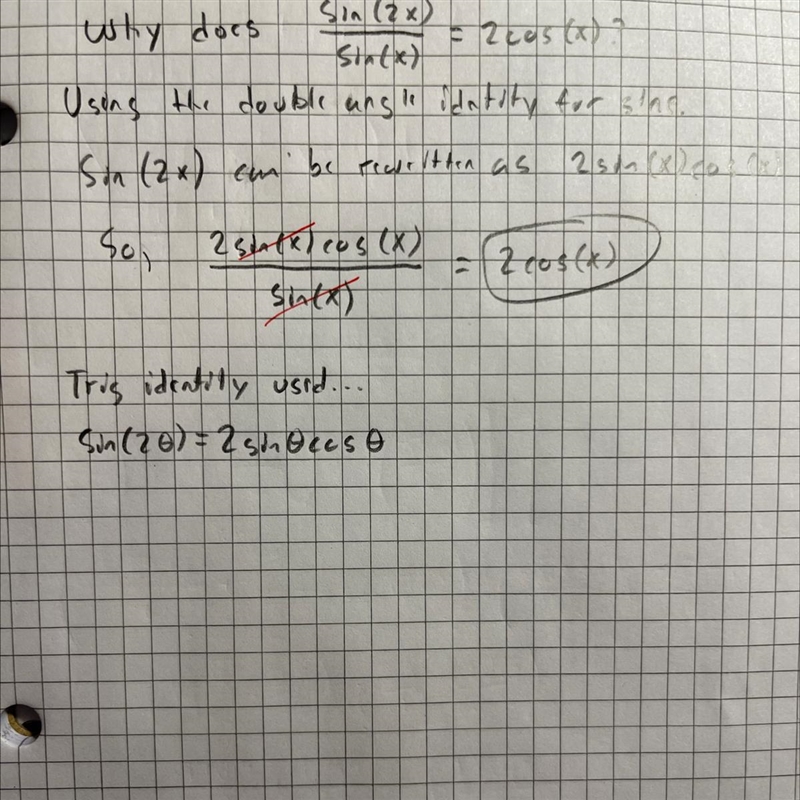 Why does sin(2x)/sin(x) = 2cos(x)?
Using the double angle idntity for sine.
Sin(2x) can be rewritten as 2sin(x)cos(x)
So, 2sin(x)cos(x)/sin(x) = 2cos(x)
Trig identity used...
Sin(2θ) = 2sinθcosθ